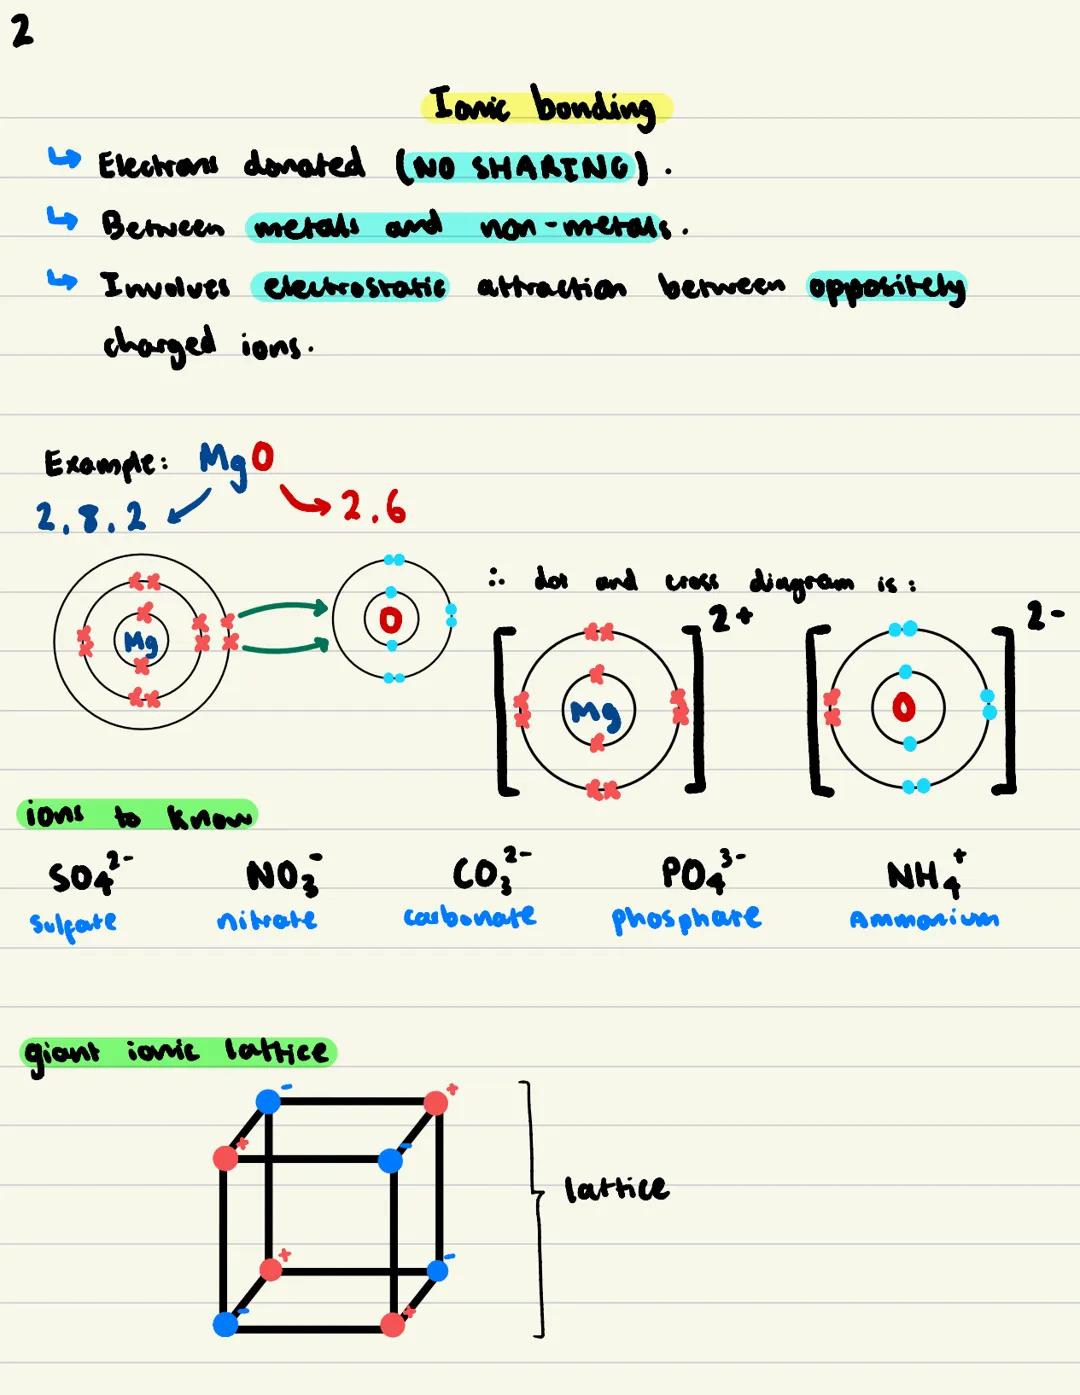 2
Ionic bonding
↳ Electrons donated (NO SHARING).
↳ Between metals and non-metals.
↳ Involves electrostatic attraction between oppositely
charged ions.
Example: MgO
2.8.2 2.6
∴ dot and cross diagram is:
Mg O [Mg]²⁺ [O]²⁻
ions to know
SO₄²⁻ NO₃⁻ CO₃²⁻ PO₄³⁻ NH₄⁺
sulfate nitrate carbonate phosphate Ammonium
giant ionic lattice
- +
+ -
lattice
+ -
- +